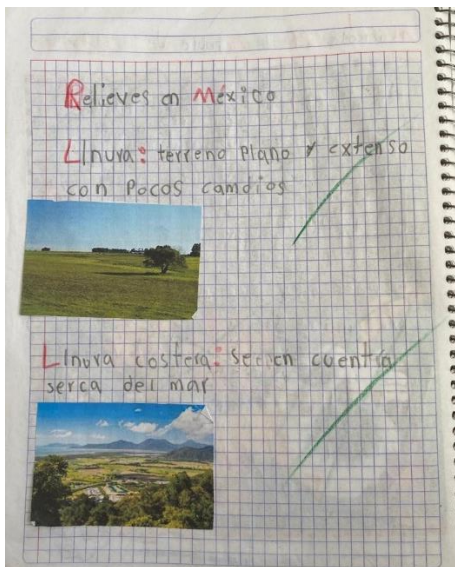 Relieves en México
Llnura: terreno plano y extenso
con Pocos camdios
Llnura costera: se en cuentra
serca del mar